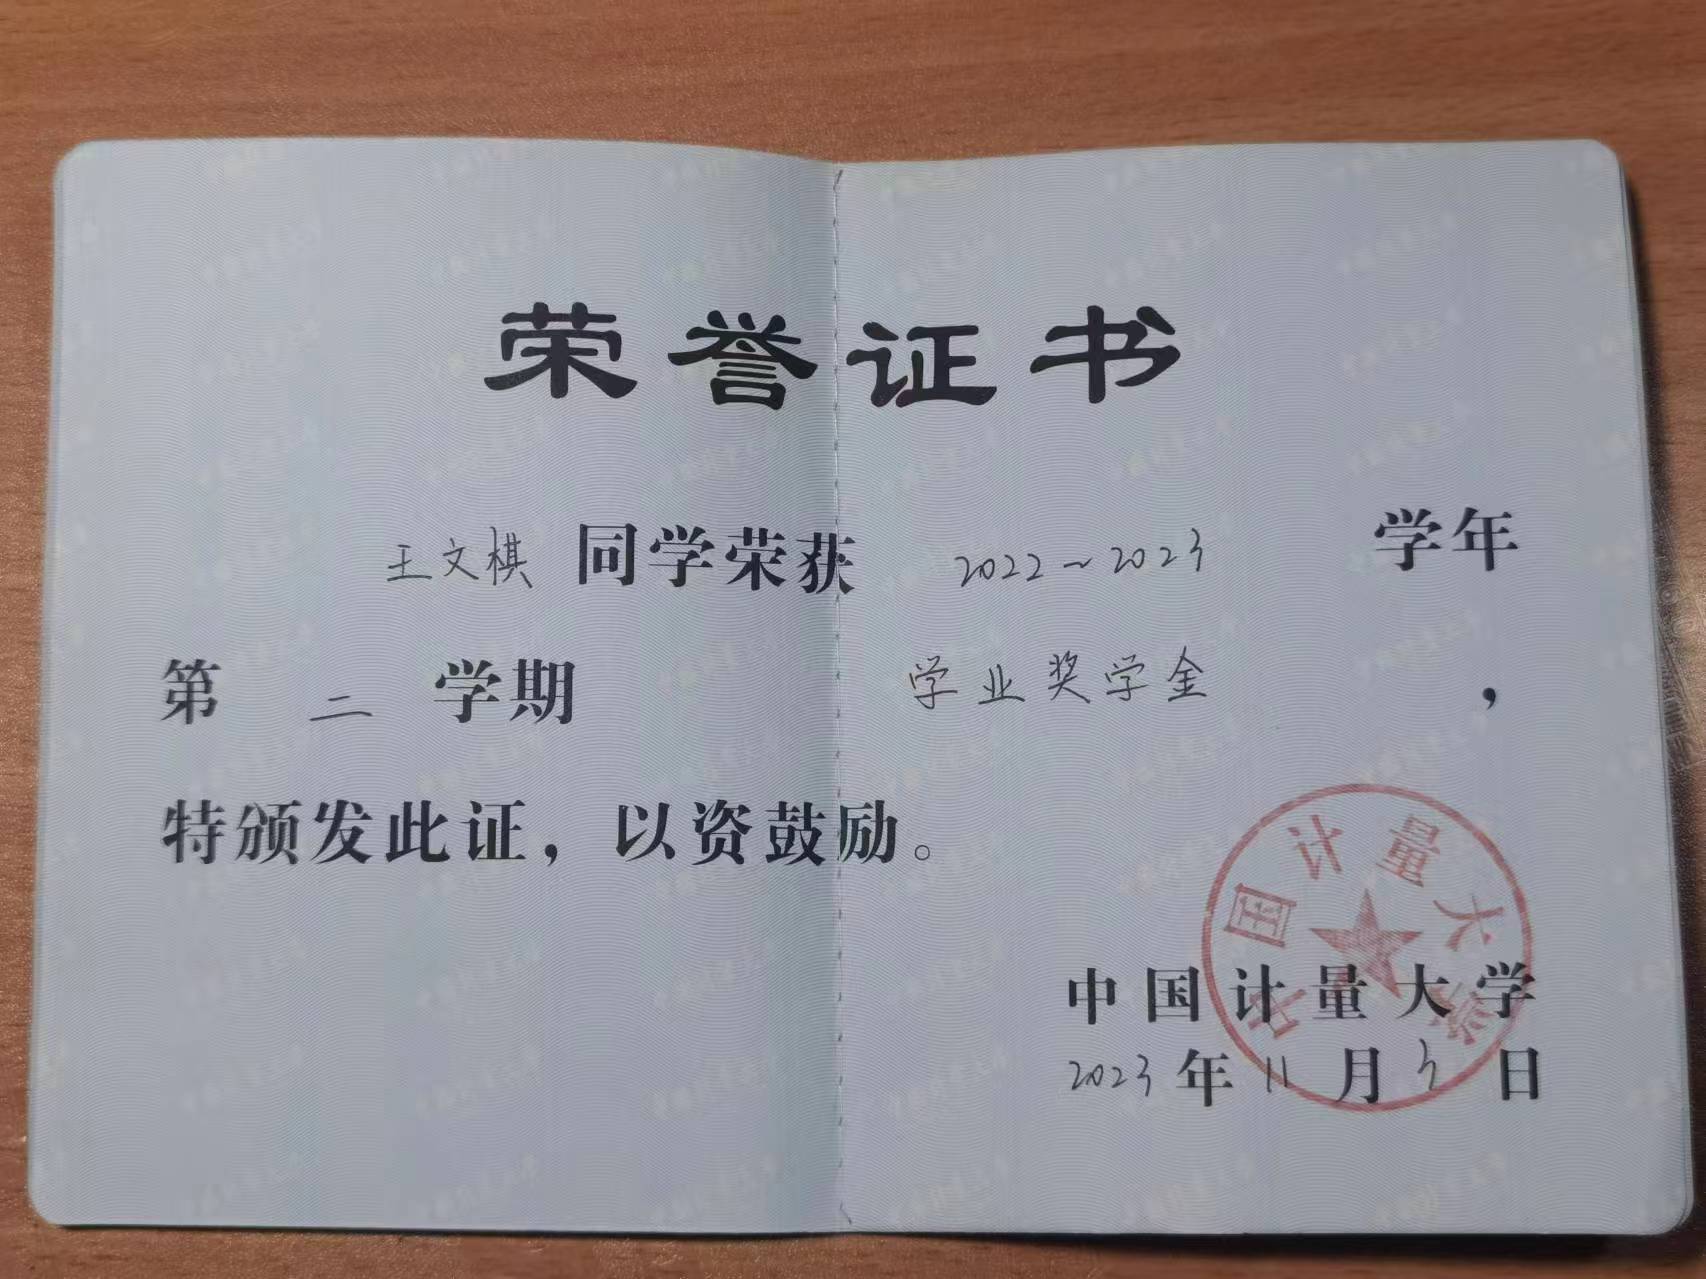 荣誉证书
王文棋同学荣获 2022~2023 学年
第 二 学期 学业奖学金 ，
特颁发此证，以资鼓励。
中国计量大学
中国计量大学
2023年11月3日